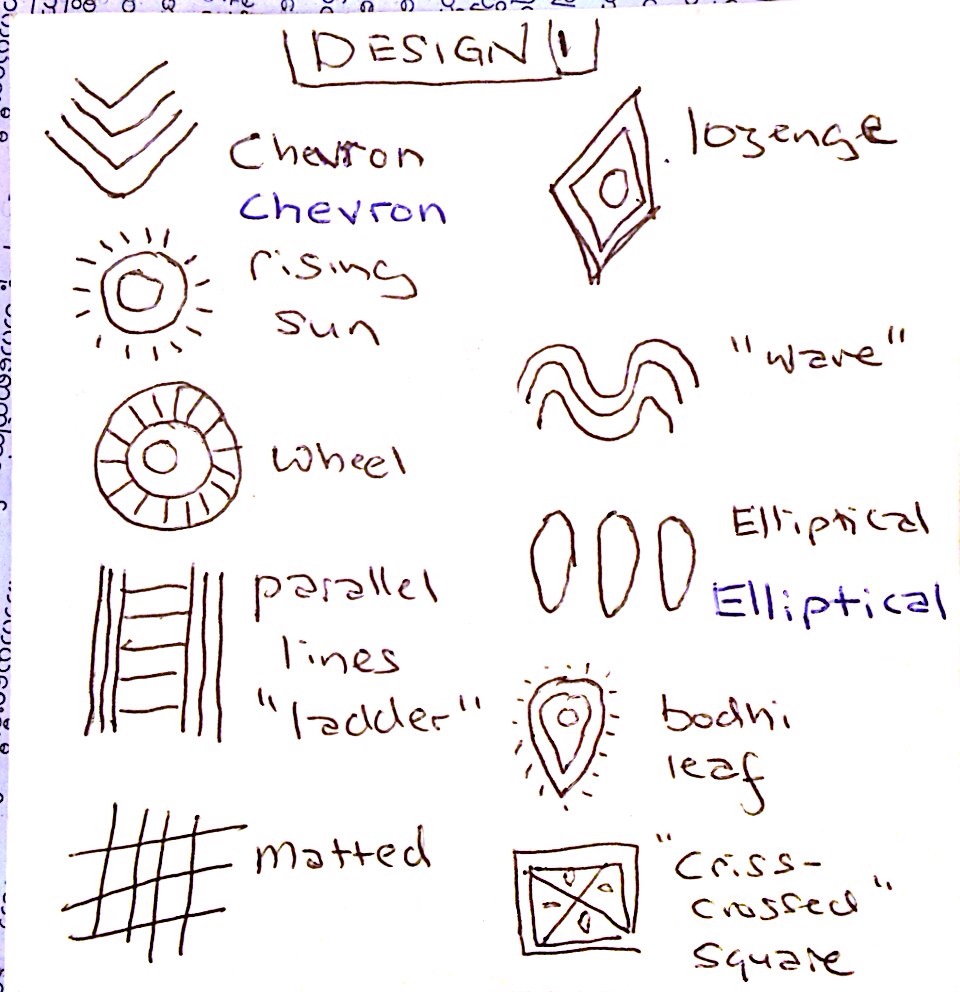 DESIGN 1
Chevron
Chevron
rising
sun
wheel
parallel
lines
"ladder"
matted
lozenge
"wave"
Elliptical
Elliptical
bodhi
leaf
"Criss-
crossed"
square